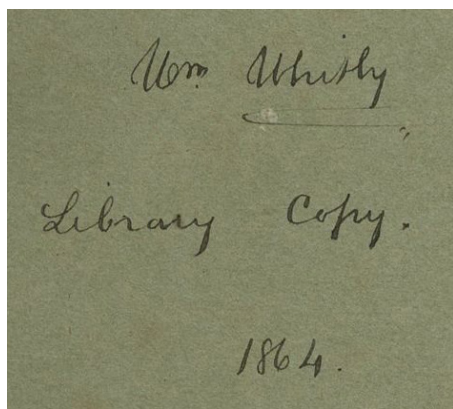 Wm. Whitly
Library Copy.
1864.